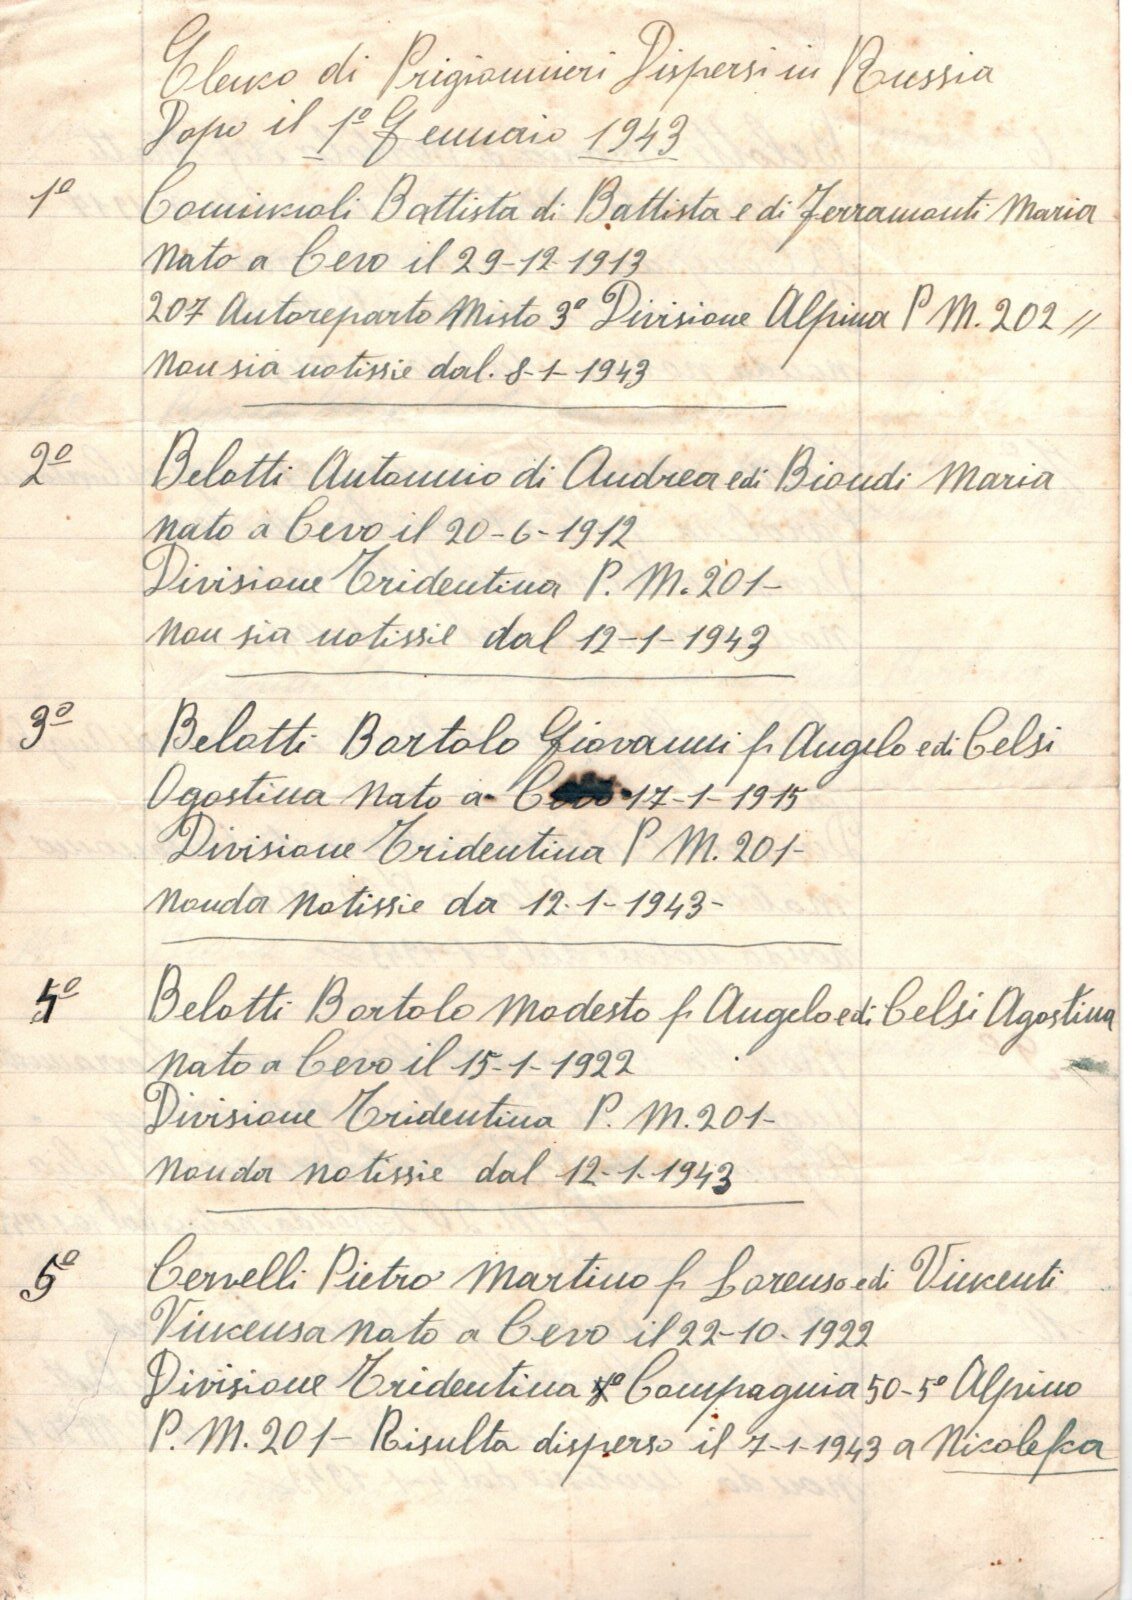 Elenco di Prigionnieri Dispersi in Russia
Dopo il 1º Gennaio 1943
1º Comincioli Battista di Battista e di Ferramonti Maria
nato a Cevo il 29-12-1913
207 Autoreparto Misto 3º Divisione Alpina P M. 202 //
non sia notissie dal. 8-1-1943
2º Belotti Antonnio di Andrea e di Biondi Maria
nato a Cevo il 20-6-1912
Divisione Tridentina P. M. 201-
non sia notissie dal 12-1-1943
3º Belotti Bortolo Giovanni f. Angelo e di Celsi
Agostina nato a Cevo 17-1-1915
Divisione Tridentina P M. 201-
nonda notissie da 12-1-1943-
4º Belotti Bortolo Modesto f. Angelo e di Celsi Agostina
nato a Cevo il 15-1-1922
Divisione Tridentina P. M. 201-
nonda notissie dal 12-1-1943
5º Cervelli Pietro Martino f. Lorenso e di Vincenti
Vincensa nato a Cevo il 22-10-1922
Divisione Tridentina Compagnia 50-5º Alpino
P. M. 201- Risulta disperso il 7-1-1943 a